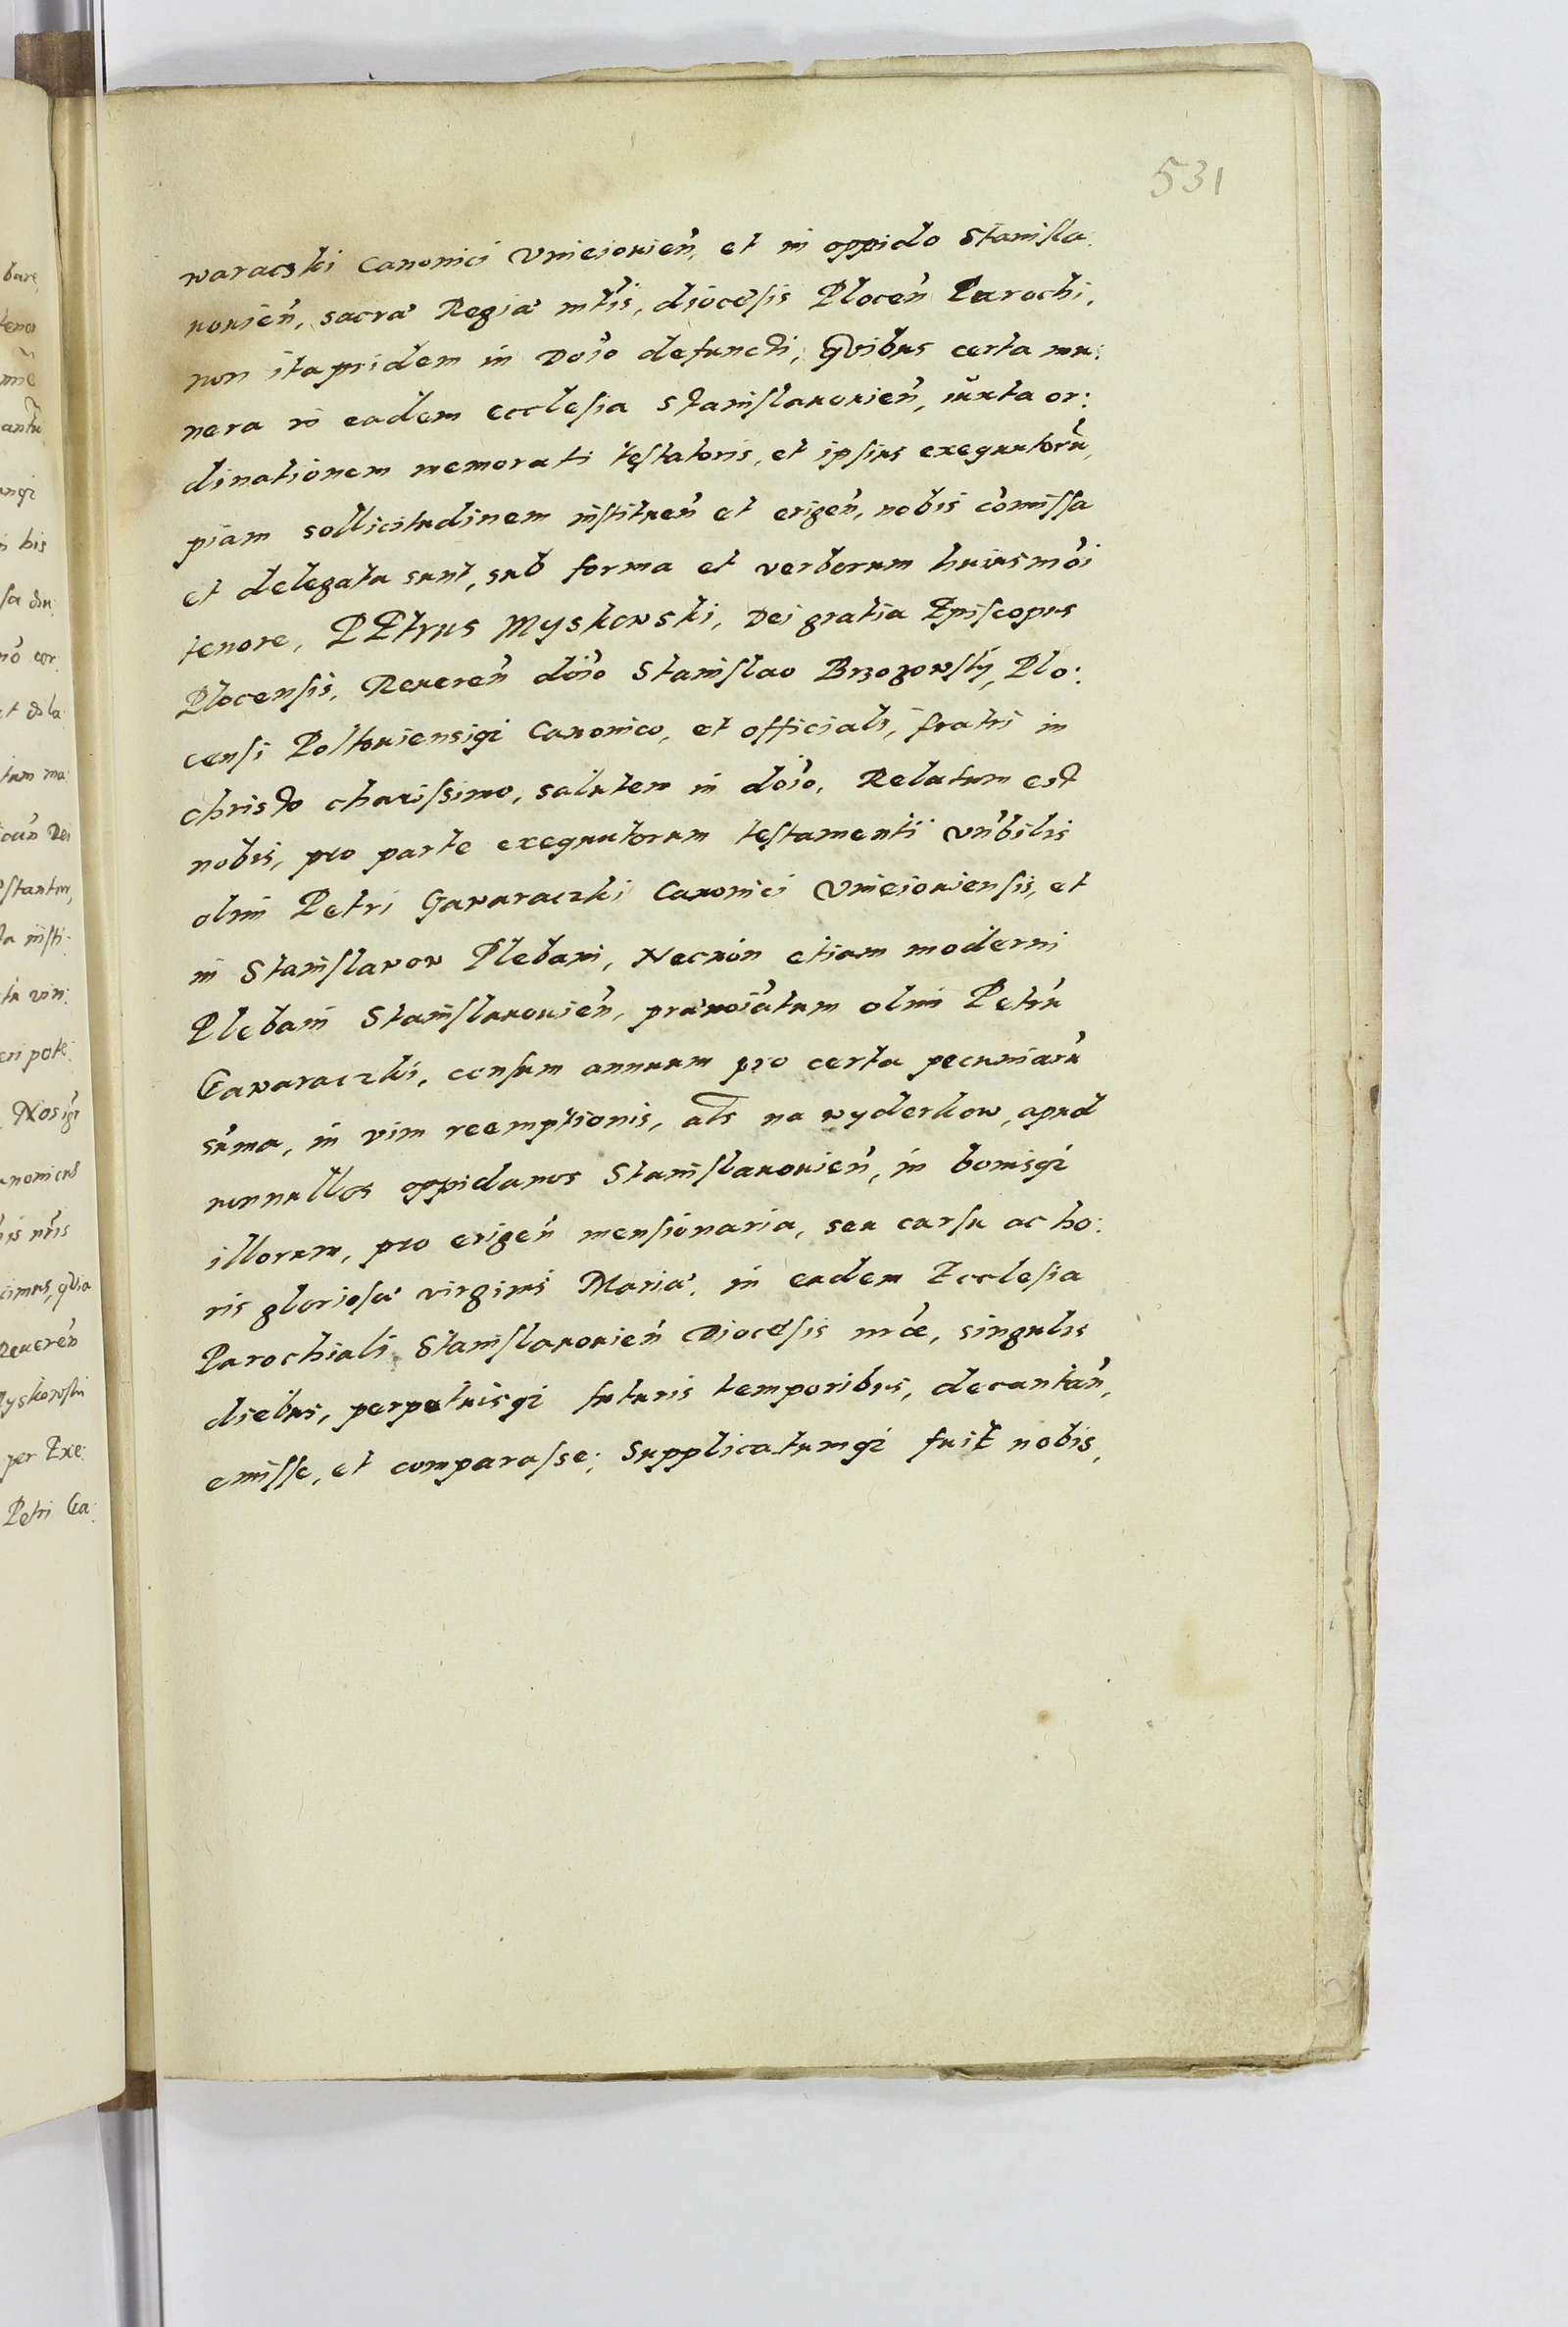 531
waracski Canonici Vnieiouien̄, et in oppido Stanisla:
uouien̄, sacræ Regiæ mt̄is, diocesis Plocen̄ Parochi,
non itapridem in Dōio defuncti, Quibus certa mu:
nera in eadem ecclesia Stanislauouien̄, iuxta or:
dinationem memorati testatoris, et ipsius exequutorū,
piam sollicitudinem instituen̄ et erigen̄, nobis com̄issa
et delegata sunt, sub forma et verborum huiusmōi
tenore, PEtrus Myskowski, Dei gratia Episcopus
Plocensis, Reueren̄ dōio Stanislao Brzozowsky, Plo:
censi Poltouiensiqꝫ Canonico, et officiali, fratri in
christo charissimo, salutem in dōio, Relatum est
nobis, pro parte exequutorum testamenti vn̄bilis
olim Petri Gawaraczki Canonici Vnieiouiensis, et
in Stanislawow Plebani, Necnon etiam moderni
Plebani Stanislauouien̄, prænoīatum olim Petrū
Gawaraczki, censum annuum pro certa pecuniarū
sūma, in vim reemptionis, al̄s na wyderkow, apud
nonnullos oppidanos Stanislauouien̄, in bonisqꝫ
illorum, pro erigen̄ mensionaria, seu cursu ac ho:
ris gloriosæ virginis Mariæ, in eadem Ecclesia
Parochiali Stanislauouien̄ Diocesis nr̄æ, singulis
diebus, perpetuisqꝫ futuris temporibus, decantan̄,
emisse, et comparasse; Supplicatumqꝫ fuit nobis,
bare
tenor
ungi
his
Nosiqꝫ
Reueren̄
per Exe:
Petri Ga: